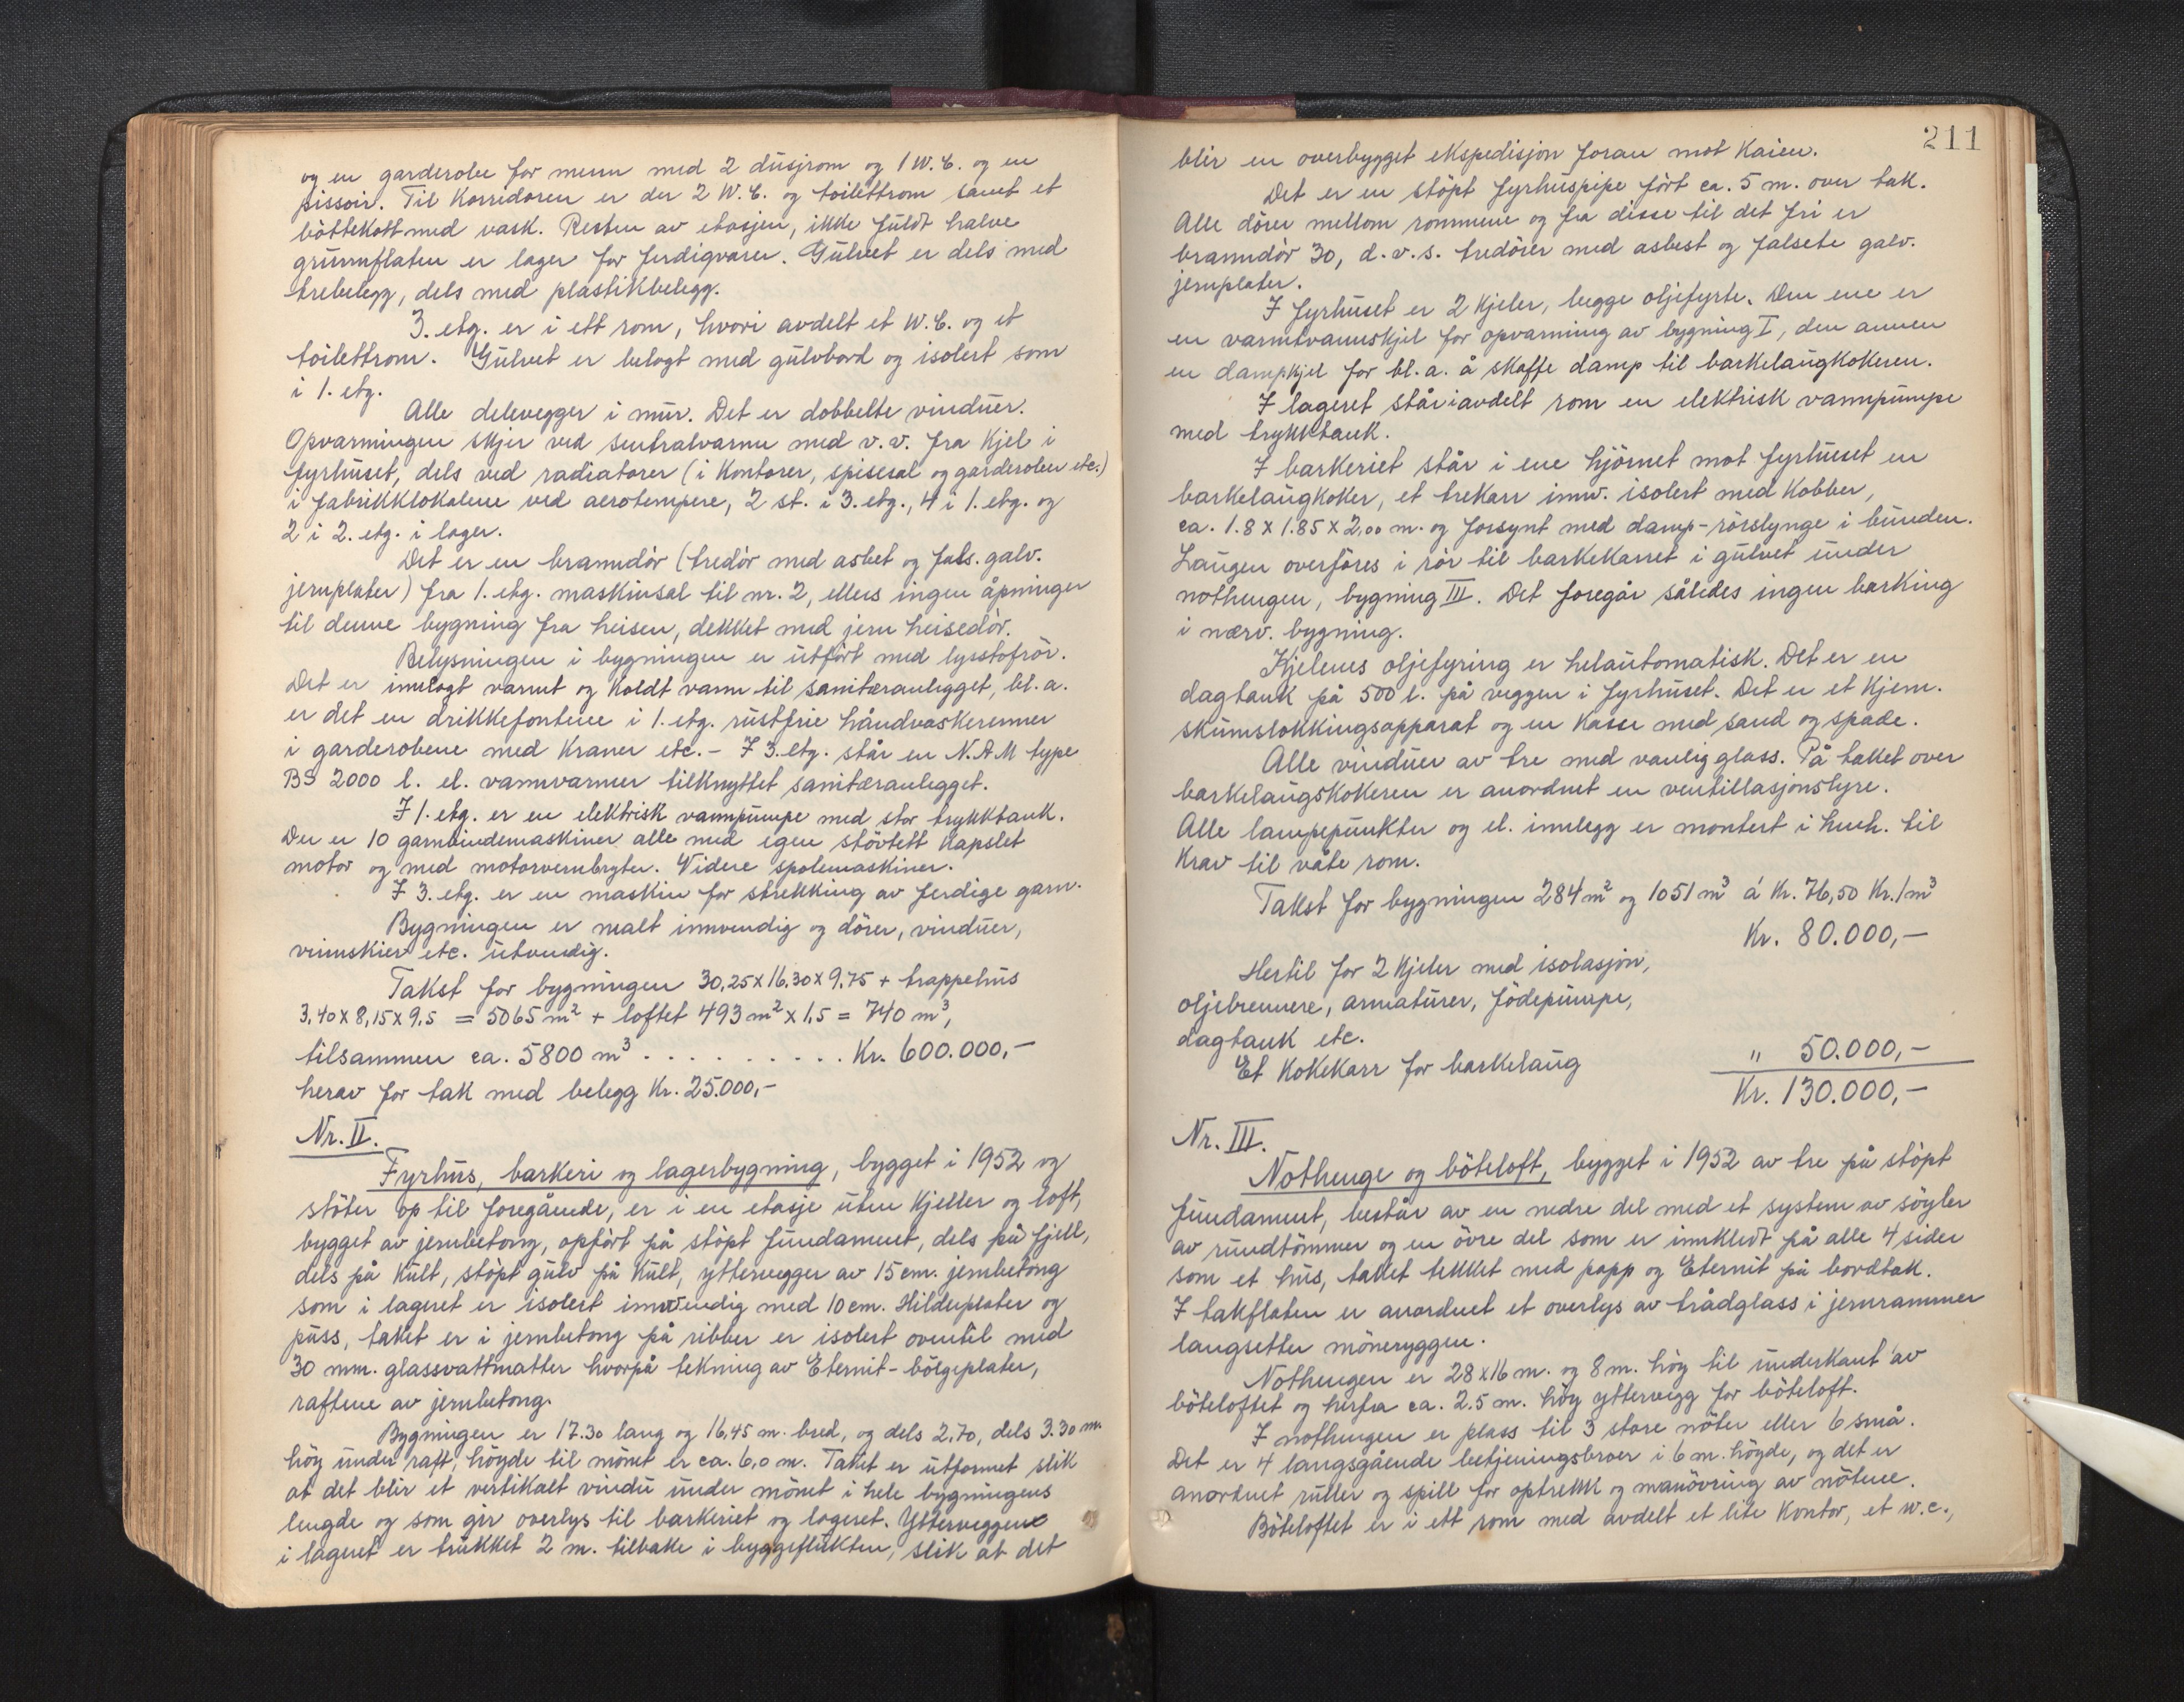 og en garderobe for menn med 2 dusjrom og 1 W.C. og en
pissoir. Til korridoren er der 2 W.C. og toilettrom samt et
bøttekott med vask. Resten av etasjen, ikke fuldt halve
grunnflaten er lager for ferdigvarer. Gulvet er dels med
trebelegg, dels med plastikbelegg.
3. etg. er i ett rom, hvori avdelt et W.C. og et
toilettrom. Gulvet er belagt med gulvbord og isolert som
i 1. etg.
Alle delevegger i mur. Det er dobbelte vinduer.
Opvarmingen skjer ved sentralvarme med v.v. fra kjel i
fyrhuset, dels ved radiatorer (i kontorer, spisesal og garderober etc.)
i fabrikklokalene ved aerotempere, 2 st. i 3. etg., 4 i 1. etg. og
2 i 2. etg. i lager.
Det er en branndör (tredör med asbet og fals. galv.
jernplater) fra 1. etg. maskinsal til nr. 2, ellers ingen åpninger
til denne bygning fra heisen, dekket med jern heisedör.
Belysningen i bygningen er utfört med lysstofrör.
Det er innlagt varmt og koldt vann til sanitæranlegget, bl.a.
er det en drikkefontene i 1. etg. rustfrie håndvaskerenner
i garderobene med kraner etc. - I 3. etg. står en N.A.M type
BS 2000 l. el. vannvarmer tilknyttet sanitæranlegget.
I 1. etg. er en elektrisk vannpumpe med stor trykktank.
Der er 10 garnbindemaskiner alle med egen stövtett kapslet
motor og med motorvernbryter. Videre spolemaskiner.
I 3. etg. er en maskin for strekking av ferdige garn.
Bygningen er malt innvendig og dörer, vinduer,
vinnskier etc. utvendig.
Takst for bygningen 30,25 x 16,30 x 9,75 + trappehus
3,40 x 8,15 x 9,5 = 5065 m² + loftet 493 m² x 1,5 = 740 m³,
tilsammen ca. 5800 m³ . . . . . . . . . . Kr. 600.000,-
herav for tak med belegg Kr. 25.000,-
Nr. II.
Fyrhus, barkeri og lagerbygning, bygget i 1952 og
stöter op til foregående, er i en etasje uten kjeller og loft,
bygget av jernbetong, opfört på stöpt fundament, dels på fjell,
dels på kult, stöpt gulv på kult, yttervegger av 15 cm. jernbetong
som i lageret er isolert innvendig med 10 cm. Hildeplater og
puss, taket er i jernbetong på ribber er isolert oventil med
30 mm. glassvattmatter hvorpå tekning av Eternit-bölgeplater,
raftene av jernbetong.
Bygningen er 17.30 lang og 16,45 m. bred, og dels 2,70, dels 3.30 m.
höy under raft, höyde til mönet er ca. 6,0 m. Taket er utformet slik
at det blir et vertikalt vindu under mönet i hele bygningens
lengde og som gir overlys til barkeriet og lageret. Ytterveggene
i lageret er trukket 2 m. tilbake i byggeflukten, slik at det
211
blir en overbygget ekspedisjon foran mot kaien.
Det er en stöpt fyrhuspipe fört ca. 5 m. over tak.
Alle dörer mellom rommene og fra disse til det fri er
branndör 30, d.v.s. tredörer med asbest og falsete galv.
jernplater.
I fyrhuset er 2 kjeler, begge oljefyrte. Den ene er
en varmtvannskjel for opvarming av bygning I, den annen
en dampkjel for bl.a. å skaffe damp til barkelaugkokeren.
I lageret står i avdelt rom en elektrisk vannpumpe
med trykktank.
I barkeriet står i ene hjörnet mot fyrhuset en
barkelaugkoker, et trekarr innv. isolert med kobber,
ca. 1.8 x 1.85 x 2,00 m. og forsynt med damp-rörslynge i bunden.
Laugen overföres i rör til barkekarret i gulvet under
nothengen, bygning III. Det foregår således ingen barking
i nærv. bygning.
Kjelenes oljefyring er helautomatisk. Det er en
dagtank på 500 l. på veggen i fyrhuset. Det er et kjem.
skumslokkingsapparat og en kasse med sand og spade.
Alle vinduer av tre med vanlig glass. På taket over
barkelaugskokeren er anordnet en ventillasjonslyre.
Alle lampepunkter og el. innlegg er montert i henh. til
krav til våte rom.
Takst for bygningen 284 m² og 1051 m³ á Kr. 76,50 Kr./m³
Kr. 80.000,-
Hertil for 2 kjeler med isolasjon,
oljebrennere, armaturer, födepumpe,
dagtank etc.
Et kokekarr for barkelaug " 50.000,-
Kr. 130.000,-
Nr. III.
Nothenge og böteloft, bygget i 1952 av tre på stöpt
fundament, består av en nedre del med et system av söyler
av rundtömmer og en övre del som er innkledt på alle 4 sider
som et hus, taket tekket med papp og Eternit på bordtak.
I takflaten er anordnet et overlys av trådglass i jernrammer
langsetter möneryggen.
Nothengen er 28 x 16 m. og 8 m. höy til underkant av
böteloftet og herfra ca. 2.5 m. höy yttervegg for böteloft.
I nothengen er plass til 3 store nöter eller 6 små.
Det er 4 langsgående betjeningsbroer i 6 m. höyde, og det er
anordnet ruller og spill for optrekk og manövring av nötene.
Böteloftet er i ett rom med avdelt et lite kontor, et w.c.,